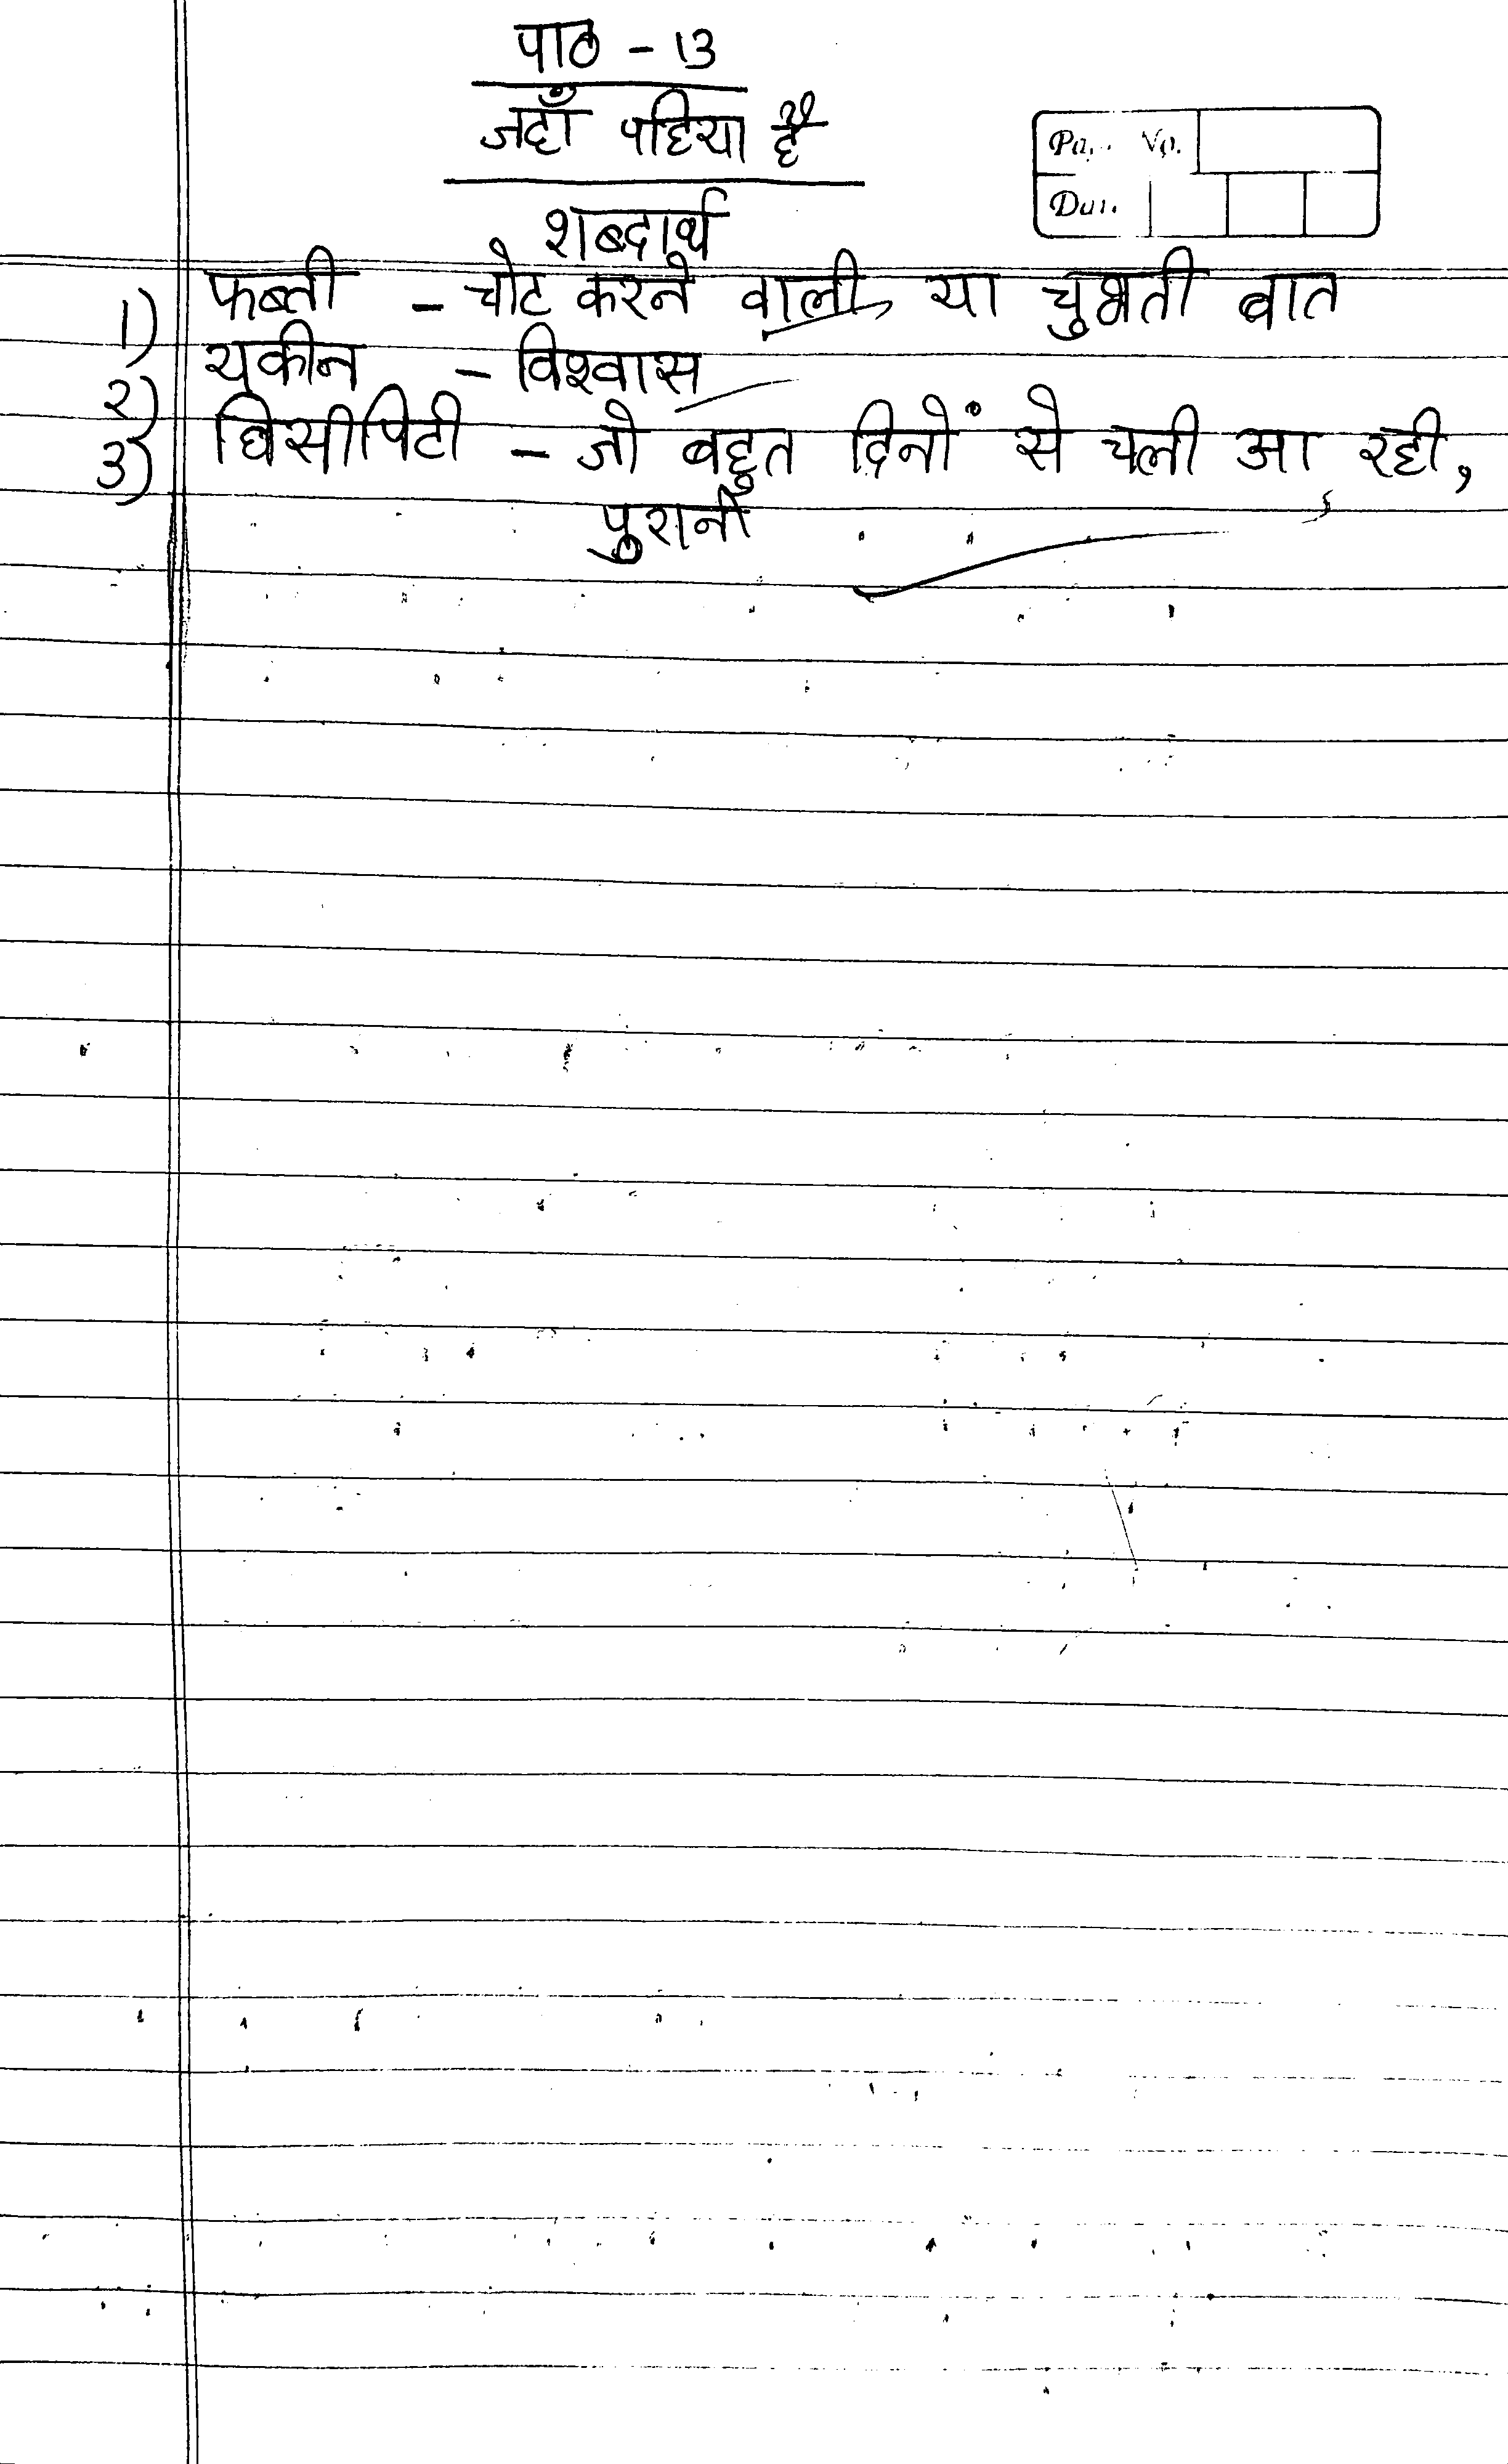 पाठ - 13
जहाँ पहिया है
Page No.
Date
शब्दार्थ
1) फब्ती - चोट करने वाली या चुभती बात
2) यकीन - विश्वास
3) घिसीपिटी - जो बहुत दिनों से चली आ रही,
पुरानी